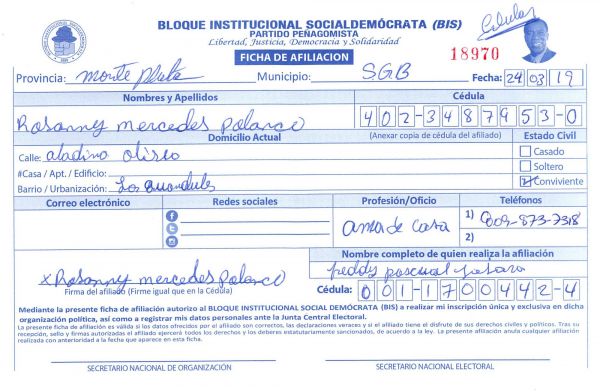 BLOQUE INSTITUCIONAL SOCIALDEMÓCRATA (BIS)
PARTIDO PEÑAGOMISTA
Libertad, Justicia, Democracia y Solidaridad
Celular
FICHA DE AFILIACION
18970
Provincia: Monte Plata Municipio: SGB Fecha: 24 03 19
Nombres y Apellidos Cédula
Rosanny mercedes Polanco 402-3487953-0
Domicilio Actual (Anexar copia de cédula del afiliado) Estado Civil
Calle: aladino Casado
#Casa / Apt. / Edificio: Soltero
Barrio / Urbanización: Los Conviviente
Correo electrónico Redes sociales Profesión/Oficio Teléfonos
ama de casa 1) 809-873-7318
2)
Nombre completo de quien realiza la afiliación
x Rosanny mercedes Polanco freddy pascual
Firma del afiliado (Firme igual que en la Cédula) Cédula: 001-1700442-4
Mediante la presente ficha de afiliación autorizo al BLOQUE INSTITUCIONAL SOCIAL DEMÓCRATA (BIS) a realizar mi inscripción única y exclusiva en dicha
organización política, así como a registrar mis datos personales ante la Junta Central Electoral.
La presente ficha de afiliación es válida si los datos ofrecidos por el afiliado son correctos, las declaraciones veraces y si el afiliado tiene el disfrute de sus derechos civiles y políticos. Tras su
recepción, sello y firmas autorizadas el afiliado ejercerá todos los derechos y los deberes estatutariamente sancionados, de acuerdo a la ley. La presente afiliación anula cualquier afiliación
realizada con anterioridad a la fecha que aparece en esta ficha.
SECRETARIO NACIONAL DE ORGANIZACIÓN SECRETARIO NACIONAL ELECTORAL